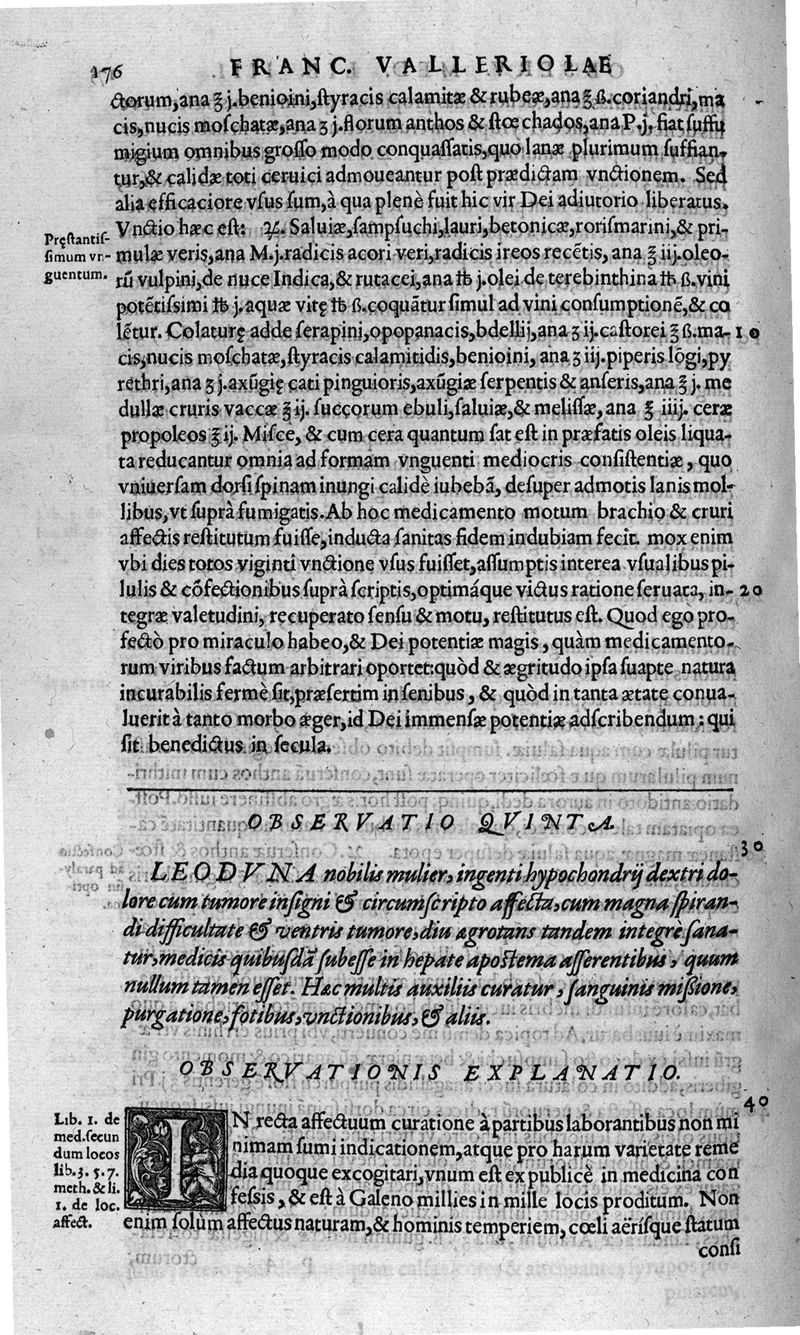 176 FRANC. VALLERIOLAE
ctorum,ana ℥ j.benioini,ſtyracis calamitæ & rubeæ,ana ℥ ß.coriandri,ma
cis,nucis moſchatæ,ana ʒ j.florum anthos & ſtœchados,ana P.j.fiat ſuffu
migium omnibus groſſo modo conquaſſatis,quo lanæ plurimum ſuffian-
tur,& calidæ toti ceruici admoueantur poſt prædictam vnctionem. Sed
alia efficaciore vſus ſum,à qua plenè fuit hic vir Dei adiutorio liberatus.
Vnctio hæc eſt: ℞. Saluiæ,ſampſuchi,lauri,betonicæ,roriſmarini,& pri-
Pręſtantiſ-
ſimum vn-
guentum.
mulæ veris,ana M.j.radicis acori veri,radicis ireos recẽtis, ana ℥ iij.oleo-
rũ vulpini,de nuce Indica,& rutacei,ana ℔ j.olei de terebinthina ℔ ß.vini
potẽtiſsimi ℔ j.aquæ vitę ℔ ß.coquãtur ſimul ad vini conſumptionẽ,& co
lẽtur. Colaturę adde ſerapini,opopanacis,bdellij,ana ʒ ij.caſtorei ℥ ß.ma- 10
cis,nucis moſchatæ,ſtyracis calamitidis,benioini, ana ʒ iij.piperis lõgi,py
rethri,ana ʒ j.axũgię cati pinguioris,axũgiæ ſerpentis & anſeris,ana ℥ j. me
dullæ cruris vaccæ ℥ ij. ſuccorum ebuli,ſaluiæ,& meliſſæ, ana ℥ iiij. ceræ
propoleos ℥ ij. Miſce, & cum cera quantum ſat eſt in præfatis oleis liqua-
ta reducantur omnia ad formam vnguenti mediocris conſiſtentiæ, quo
vniuerſam dorſi ſpinam inungi calidè iubebã, deſuper admotis lanis mol-
libus,vt ſuprà fumigatis.Ab hoc medicamento motum brachio & cruri
affectis reſtitutum fuiſſe,inducta ſanitas fidem indubiam fecit. mox enim
vbi dies totos viginti vnctione vſus fuiſſet,aſſumptis interea vſualibus pi-
lulis & cõfectionibus ſuprà ſcriptis,optimáque victus ratione ſeruata, in- 20
tegræ valetudini, recuperato ſenſu & motu, reſtitutus eſt. Quod ego pro-
fectò pro miraculo habeo,& Dei potentiæ magis, quàm medicamento-
rum viribus factum arbitrari oportet:quòd & ægritudo ipſa ſuapte natura
incurabilis fermè ſit,præſertim in ſenibus, & quòd in tanta ætate conua-
luerit à tanto morbo æger,id Dei immenſæ potentiæ adſcribendum: qui
ſit benedictus in ſecula.
OBSERVATIO QVINTA.
30
LEODVNA nobilis mulier, ingenti hypochondrij dextri do-
lore cum tumore inſigni & circumſcripto affecta,cum magna ſpiran-
di difficultate & ventris tumore,diu ægrotans tandem integrè ſana-
tur,medicis quibuſdã ſubeſſe in hepate apoſtema aſſerentibus, quum
nullum tamen eſſet. Hæc multis auxiliis curatur, ſanguinis miſsione,
purgatione,fotibus,vnctionibus,& aliis.
OBSERVATIONIS EXPLANATIO.
40
Lib. 1. de
med.ſecun
dum locos
lib.3. 5. 7.
meth. & li.
1. de loc.
affect.
IN recta affectuum curatione à partibus laborantibus non mi
nimam ſumi indicationem,atque pro harum varietate reme
dia quoque excogitari,vnum eſt ex publicè in medicina con
feſsis, & eſt à Galeno millies in mille locis proditum. Non
enim ſolùm affectus naturam,& hominis temperiem, cœli aëriſque ſtatum
conſi